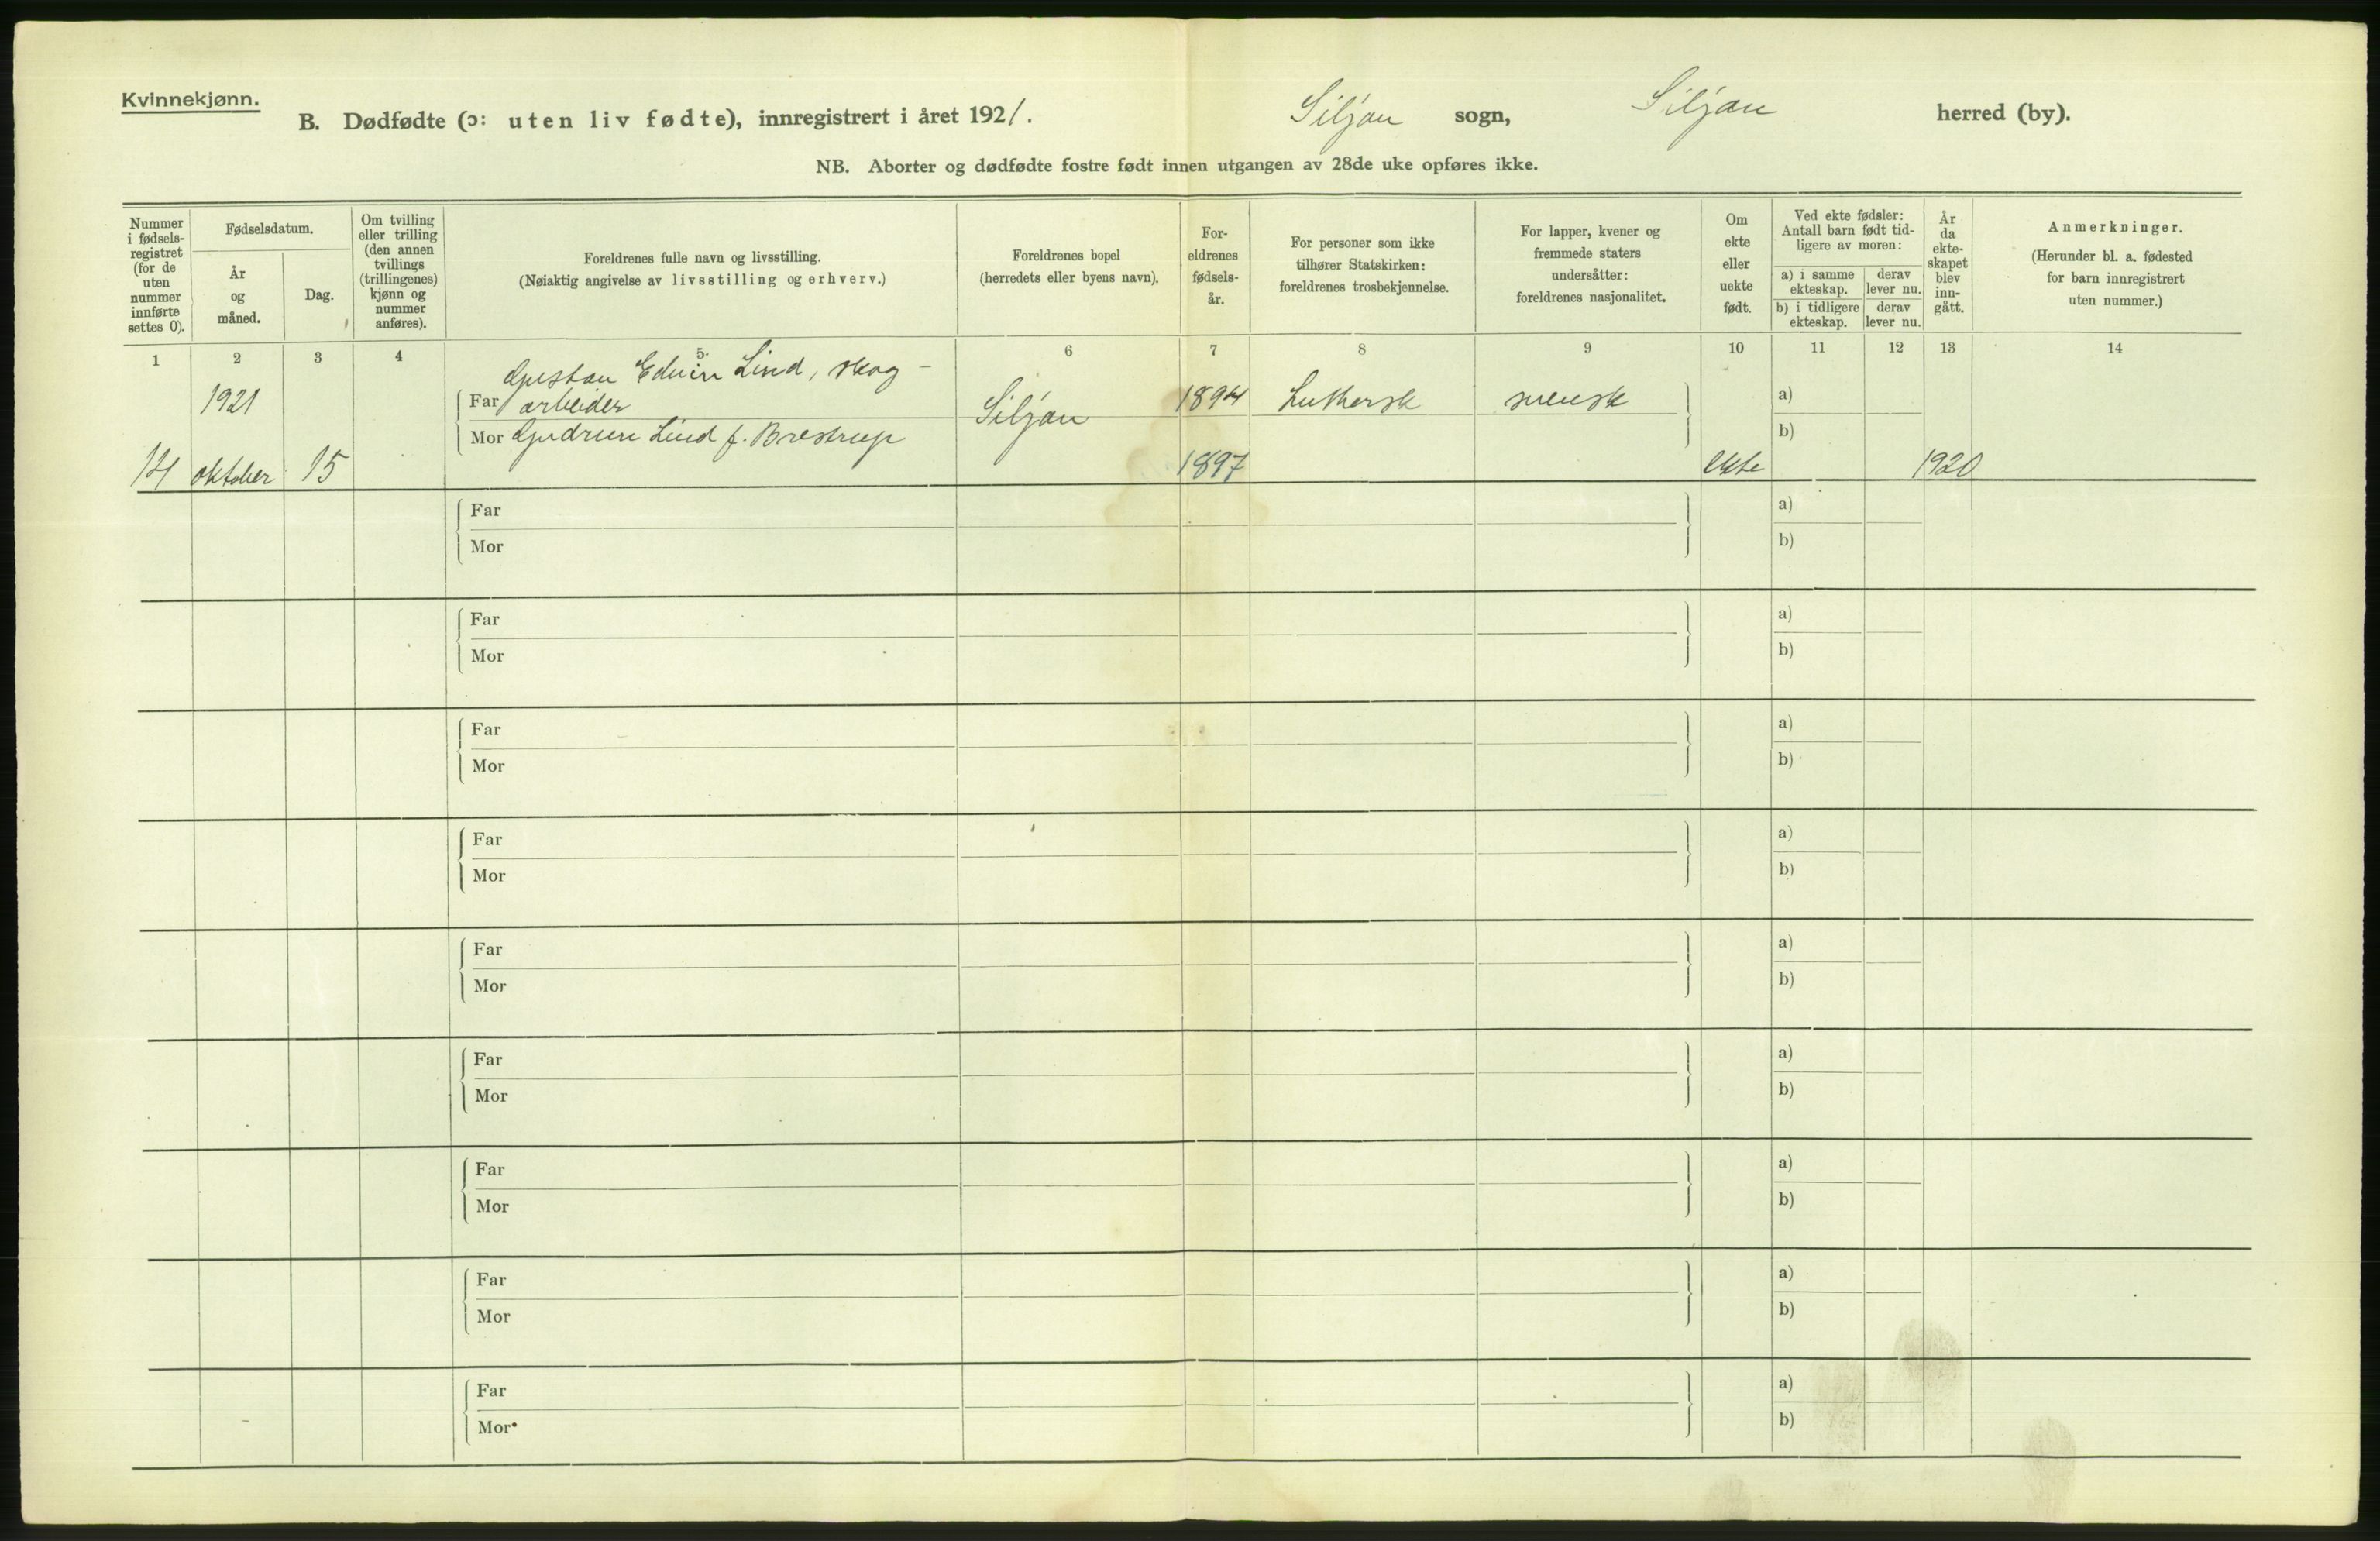 Kvinnekjønn.
B. Dødfødte (ɔ: uten liv fødte), innregistrert i året 1921. Siljan sogn, Siljan herred (by).
NB. Aborter og dødfødte fostre født innen utgangen av 28de uke opføres ikke.
Nummer
i fødsels-
registret
(for de
uten
nummer
innførte
settes 0).
Fødselsdatum.
År
og
måned.
Dag.
Om tvilling
eller trilling
(den annen
tvillings
(trillingenes)
kjønn og
nummer
anføres).
Foreldrenes fulle navn og livsstilling.
(Nøiaktig angivelse av livsstilling og erhverv.)
Foreldrenes bopel
(herredets eller byens navn).
For-
eldrenes
fødsels-
år.
For personer som ikke
tilhører Statskirken:
foreldrenes trosbekjennelse.
For lapper, kvener og
fremmede staters
undersåtter:
foreldrenes nasjonalitet.
Om
ekte
eller
uekte
født.
Ved ekte fødsler:
Antall barn født tid-
ligere av moren:
a) i samme
ekteskap.
derav
lever nu.
b) i tidligere
ekteskap.
derav
lever nu.
År
da
ekte-
skapet
blev
inn-
gått.
Anmerkninger.
(Herunder bl. a. fødested
for barn innregistrert
uten nummer.)
1 2 3 4 5. 6 7 8 9 10 11 12 13 14
Gustav Edvin Lind, skog-
1921 Far arbeider Siljan 1894 Luthersk svensk a)
Mor Gudrun Lind f. Brestrup b)
14 oktober 15 1897 ekte 1920
Far a)
Mor b)
Far a)
Mor b)
Far a)
Mor b)
Far a)
Mor b)
Far a)
Mor b)
Far a)
Mor b)
Far a)
Mor b)
Far a)
Mor b)
Far a)
Mor b)